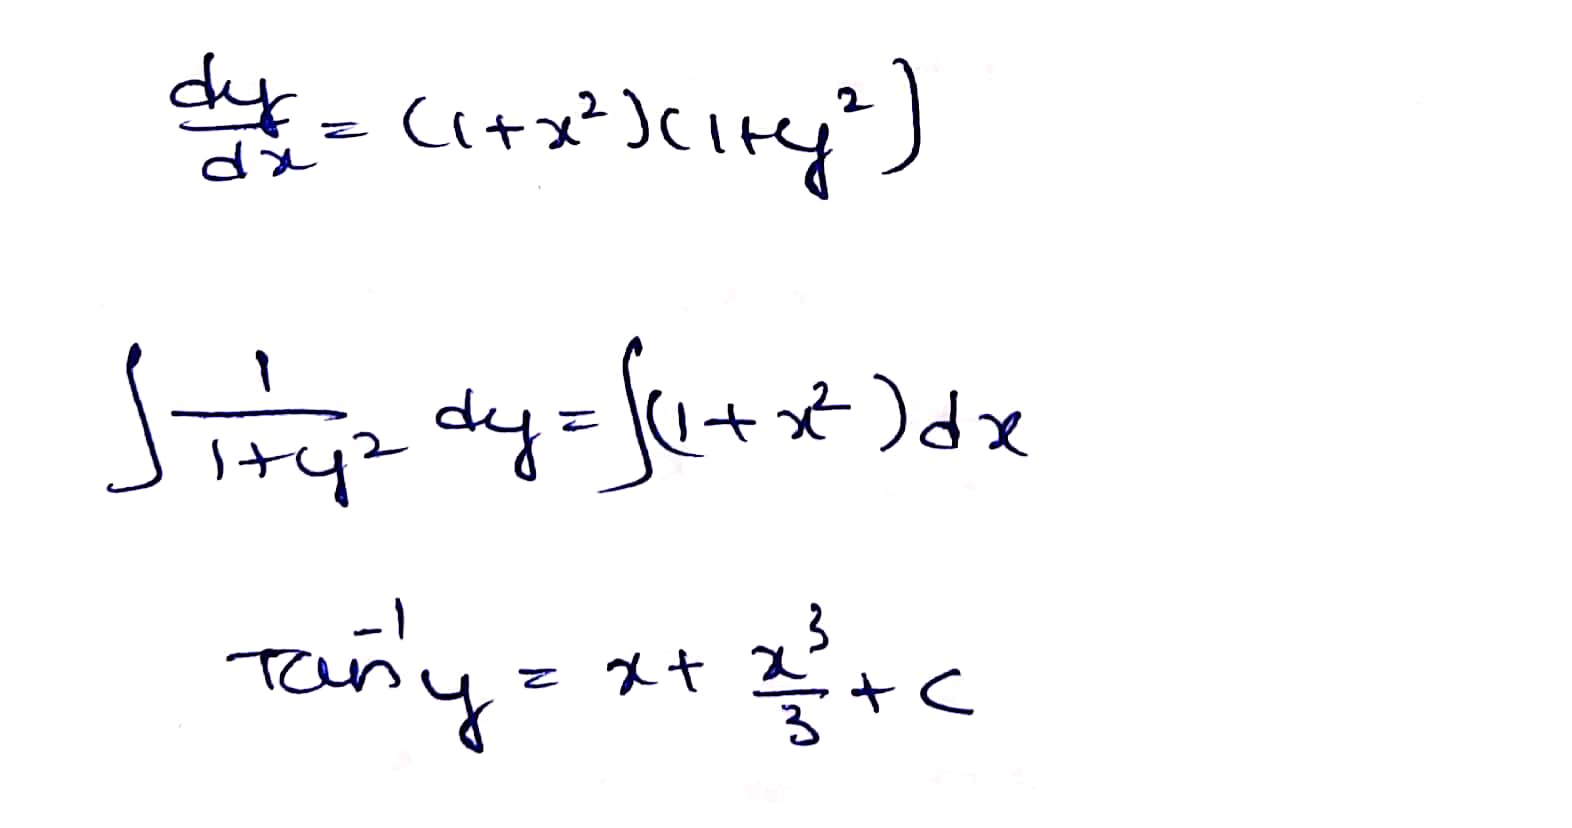 dy/dx = (1+x²)(1+y²)
∫ 1/(1+y²) dy = ∫(1+x²)dx
Tan⁻¹y = x + x³/3 + c